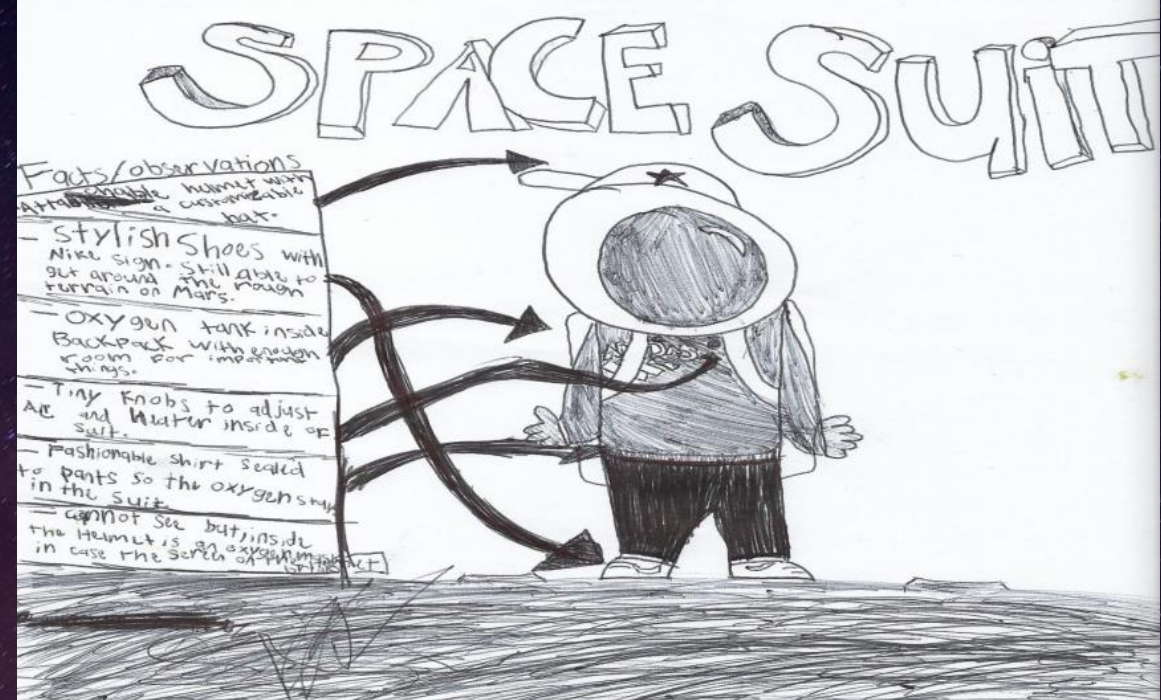 SPACE SUiT
Facts/observations
Attachable helmet with
a customizable
hat.
- Stylish Shoes with
Nike sign. Still able to
get around the rough
terrain on Mars.
- Oxygen tank inside
Backpack with enough
room for important
things.
- Tiny Knobs to adjust
AC and Heater inside of
suit.
- Fashionable shirt sealed
to pants so the oxygen stay
in the suit
- cannot see but, inside
the Helmet is an oxygen mask
in case the screen on the